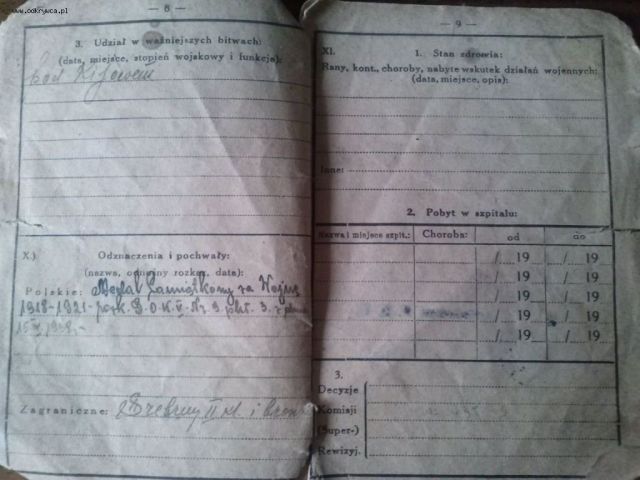 www.odkrywca.pl
— 8 —
3. Udział w ważniejszych bitwach:
(data, miejsce, stopień wojskowy i funkcja):
pod Kijowem
X.)
Odznaczenia i pochwały:
(nazwa, odnośny rozkaz, data):
Polskie: Medal Pamiątkowy za Wojnę
1918-1921 D.O.K. Nr. 9 pkt. 3. z
1928
Zagraniczne: Srebrny II kl. i bron
— 9 —
XI.
1. Stan zdrowia:
Rany, kont., choroby, nabyte wskutek działań wojennych:
(data, miejsce, opis):
Inne:
2. Pobyt w szpitalu:
Nazwa i miejsce szpit.: Choroba: od do
/ 19 / 19
/ 19 / 19
/ 19 / 19
/ 19 / 19
/ 19 / 19
3.
Decyzje
Komisji
(Super-)
Rewizyj.